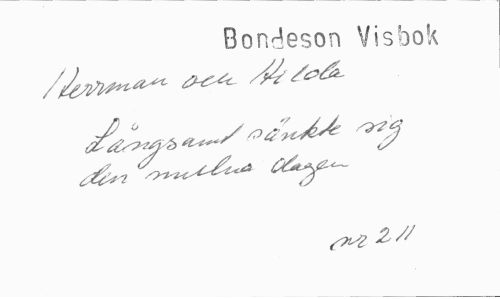 Bondeson Visbok
Herrman och Hilda
Långsamt sänkte sig
den mulna dagen
nr 211